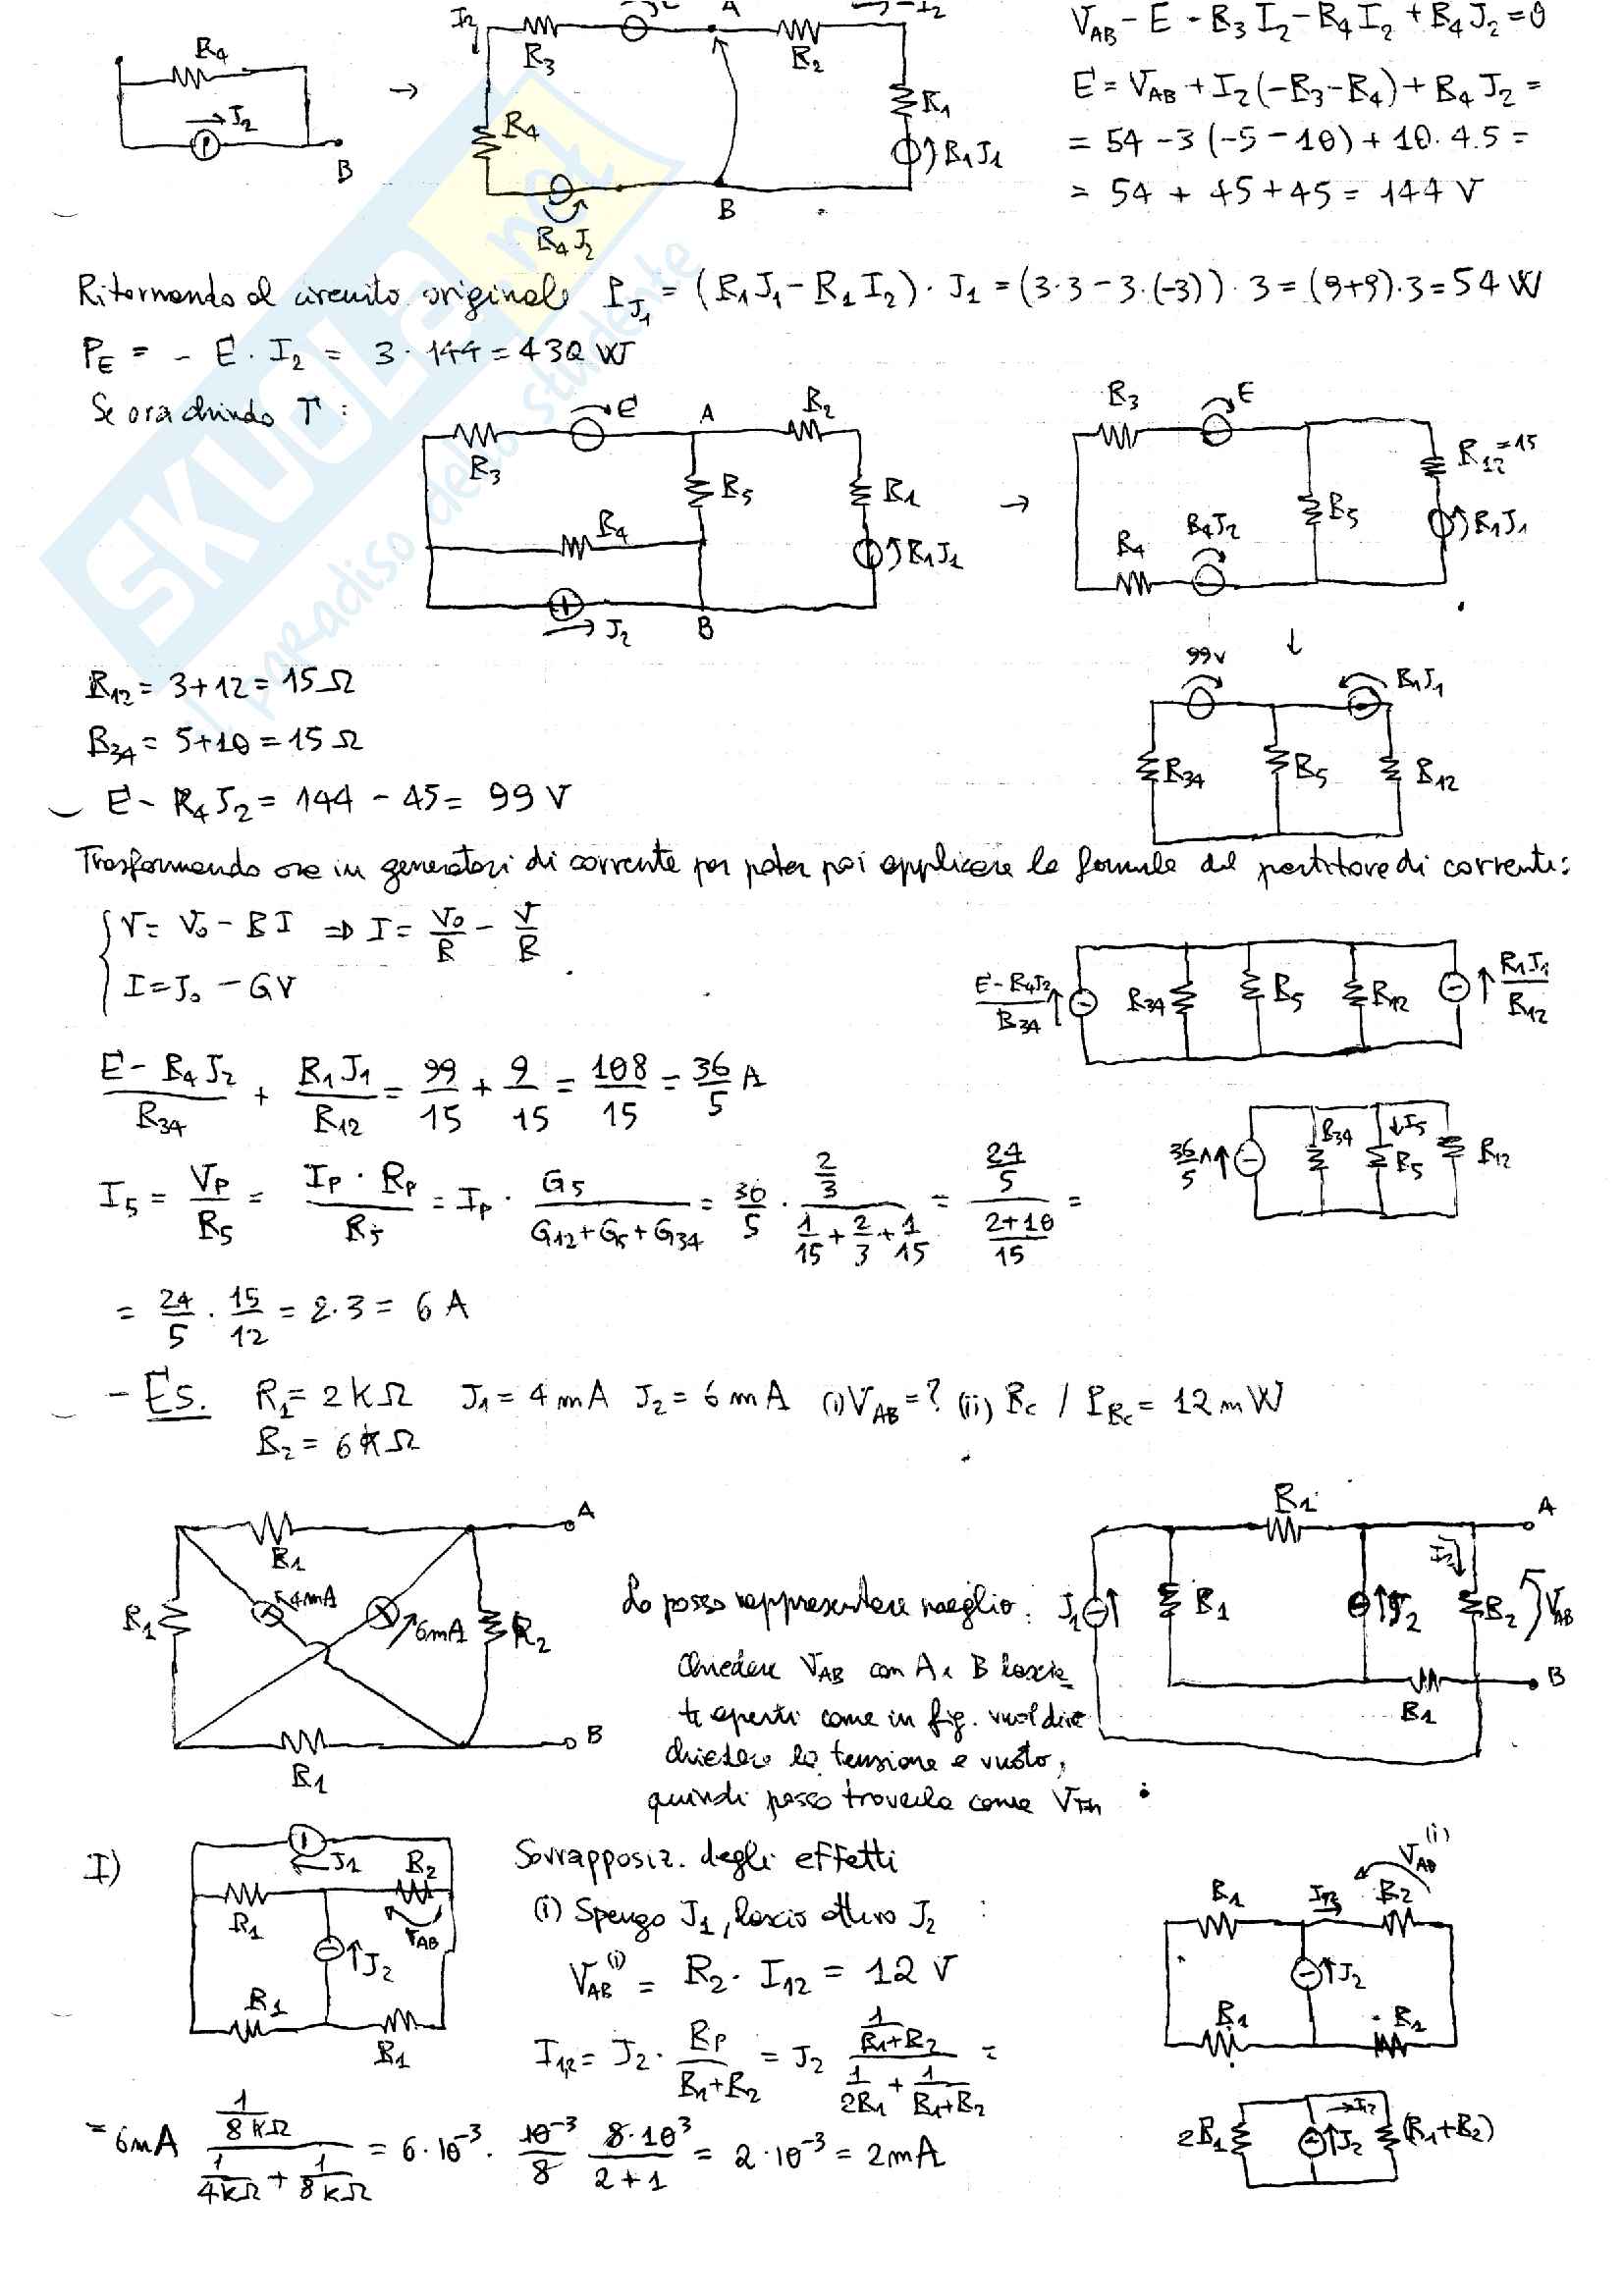 I₂
A
V_AB - E - R₃I₂ - R₄I₂ + R₄J₂ = 0
R₄
J₂
B
→
R₃
R₂
R₄
R₁
R₁J₁
R₄J₂
B
E = V_AB + I₂(-R₃-R₄) + R₄J₂ =
= 54 - 3(-5-10) + 10·4.5 =
= 54 + 45 + 45 = 144 V
Ritornando al circuito originale P_J₁ = (R₁J₁ - R₁I₂)·J₁ = (3·3 - 3·(-3))·3 = (9+9)·3 = 54 W
P_E = - E·I₂ = 3·144 = 432 W
Se ora chiudo T:
R₃
E
A
R₂
R₅
R₁
R₄
R₁J₁
J₂
B
→
R₃
E
R₁₂=15
R₅
R₁J₁
R₄
R₄J₂
↓
R₁₂ = 3+12 = 15 Ω
R₃₄ = 5+10 = 15 Ω
E - R₄J₂ = 144 - 45 = 99 V
99V
R₁J₁
R₃₄
R₅
R₁₂
Trasformando ora in generatori di corrente per poter poi applicare la formula del partitore di corrente:
{ V = V₀ - RI ⇒ I = V₀/R - V/R
I = J₀ - GV
(E-R₄J₂)/R₃₄
R₃₄
R₅
R₁₂
R₁J₁/R₁₂
(E - R₄J₂)/R₃₄ + R₁J₁/R₁₂ = 99/15 + 9/15 = 108/15 = 36/5 A
36/5 A
R₃₄
I₅
R₅
R₁₂
I₅ = V_P/R₅ = (I_P · R_P)/R₅ = I_P · G₅/(G₁₂+G₅+G₃₄) = 36/5 · (2/3)/(1/15 + 2/3 + 1/15) = (24/5)/((2+10)/15) =
= 24/5 · 15/12 = 2·3 = 6 A
- Es. R₁ = 2 kΩ J₁ = 4 mA J₂ = 6 mA (i) V_AB = ? (ii) R_c / P_Rc = 12 mW
R₂ = 6 kΩ
A
R₁
R₁
4mA
6mA
R₂
R₁
B
Lo posso rappresentare meglio:
Chiedere V_AB con A e B lascia-
ti aperti come in fig. vuol dire
chiedere la tensione a vuoto,
quindi posso trovarla come V_Th
R₁
A
J₁
R₁
J₂
I₂
R₂
V_AB
B
R₁
I)
J₁
R₂
R₁
V_AB
J₂
R₁
R₁
Sovrapposiz. degli effetti
(i) Spengo J₁, lascio attivo J₂ :
V_AB⁽ⁱ⁾ = R₂ · I₁₂ = 12 V
I₁₂ = J₂ · R_P/(R₁+R₂) = J₂ (1/(R₁+R₂))/(1/2R₁ + 1/(R₁+R₂)) =
= 6mA (1/8kΩ)/(1/4kΩ + 1/8kΩ) = 6·10⁻³ · 10⁻³/8 · 8·10³/(2+1) = 2·10⁻³ = 2mA
V_AB⁽ⁱ⁾
R₁
I₁₂
R₂
J₂
R₁
R₁
2R₁
J₂
I₁₂
(R₁+R₂)
SKUOLA.net
il paradiso dello studente